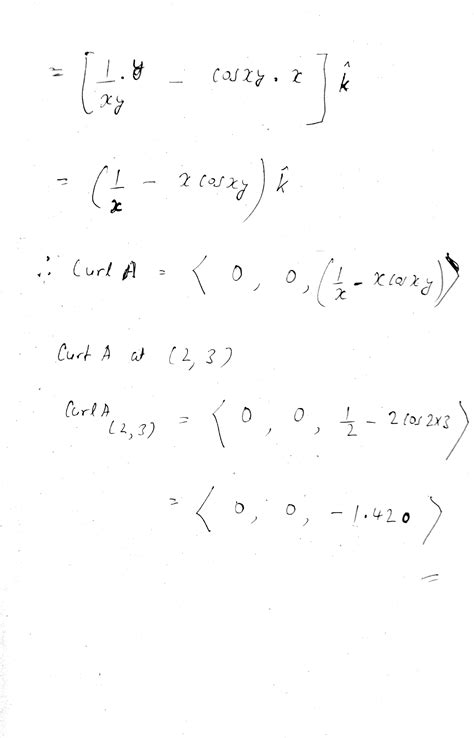 = [ 1/xy . y - cosxy . x ] k̂
= ( 1/x - x cosxy ) k̂
∴ Curl A = ⟨ 0, 0, ( 1/x - x cosxy ) ⟩
Curl A at (2, 3)
Curl A (2,3) = ⟨ 0, 0, 1/2 - 2 cos 2×3 ⟩
= ⟨ 0, 0, -1.420 ⟩
=